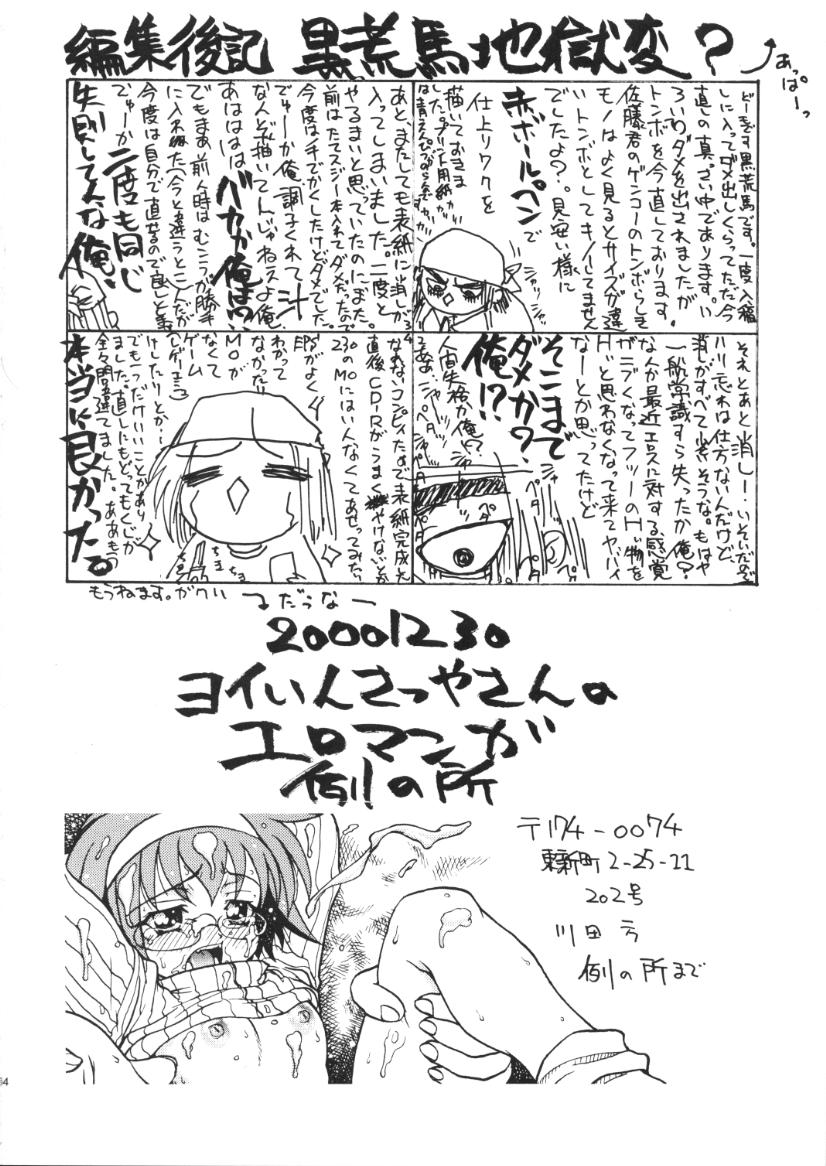 編集後記 黒荒馬地獄変？
あっぱーっ
どーもです黒荒馬です。一度入稿
しに入ってダメ出しくらってただ今
直しの真っさい中であります。い
ろいろダメを出されましたが
トンボを今直しております。
佐藤君のゲンコーのトンボらしき
モノはよく見るとサイズが違
いトンボとしてキノーしてません
でしたよ？。見安い様に
赤ボールペンで
仕上リワクを
描いておきま
した。プリント用紙が
あとまたしても表紙に消しが
入ってしまいました。二度と
やるまいと思っていたのにぼた。
前はたてスジ一本入れてダメだったので
今度はベチでかくしたけどダメでした。
でゅーか俺調子くれて汁
なんぞ描いてんじゃねえよ俺
あはははバカか俺はっ
でもまあ前ん時はむこうが勝手
に入れぬた（今と違うとこ）んだが
今度は自分で直せるので良しと
でゅーか二度も同じ
失敗してんな俺、
それとあと消し！いそいだので
ハリ忘れは仕方ないんだけど、
消しがすべて小さそうな。もはや
一般常識すら失ったか俺？
なんか最近エロスに対する感覚
がニブくなってフツーのHっ物を
Hっと思わなくなって来てヤバイ
なーとか思ってたけど
そこまで
ダメか？
俺！？
人間失格か俺？
ペタ
ペタ
ペタ
なれないコンピュータで表紙完成
直後CD-Rがうまくやけないとか
230のMOにはいんなくてあせってみたり
EPSがよく
わかって
なかったり
MOが
なくて
ゲーム
けしたりとか…
でも一つだけいいことがあり
ました。直しにもどってもくじが
全々間違ってました。ああもう
本当に良かった。
ちま
ちま
もうねます。ガクい
だうなー
20001230
ヨイいんさつやさんの
エロマンガ
例の所
〒174-0074
東新町2-25-11
202号
川田方
例の所まで
64